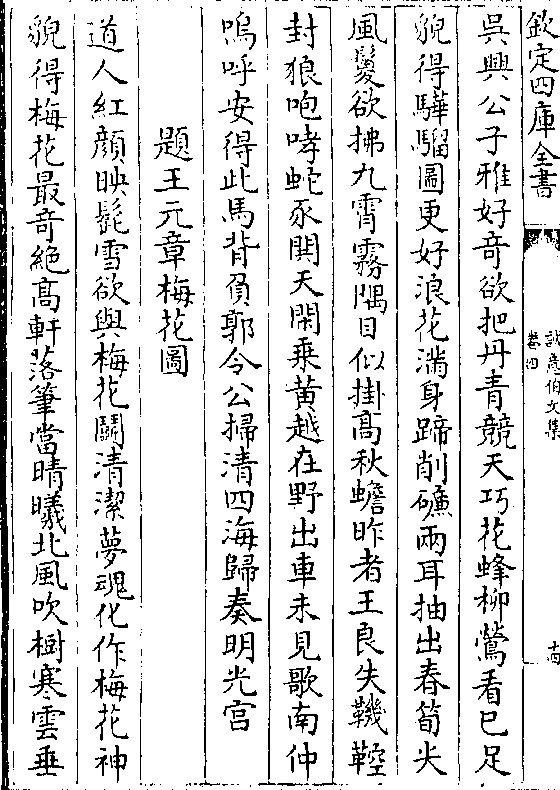 欽定四庫全書
誠意伯文集
卷四
十四
吳興公子雅好奇欲把丹青競天巧花蜂柳鶯看已足
貌得驊騮圖更好浪花滿身蹄削礪兩耳抽出春筍尖
風鬉欲拂九霄霧隅目似掛高秋蟾昨者王良失鞿鞚
封狼咆哮蛇豕鬨天閑乗黄越在野出車未見歌南仲
嗚呼安得此馬背負郭令公掃清四海歸奏明光宫
題王元章梅花圖
道人紅顔映髭雪欲與梅花鬭清潔夢魂化作梅花神
貌得梅花最竒絶髙軒落筆當晴曦北風吹樹寒雲垂